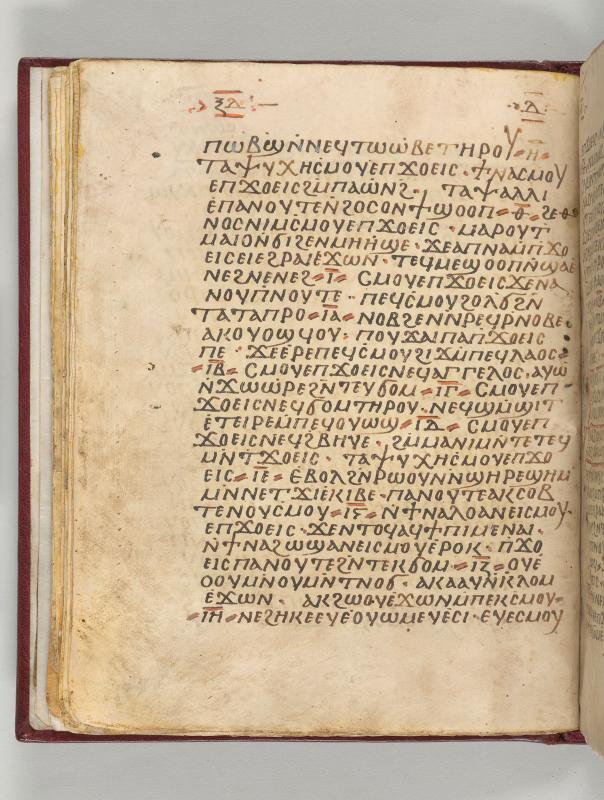 ⲝ̅ⲇ̅ ⲇ̅
ⲡⲱⲃϣⲛⲛⲉϥⲧⲱⲱⲃⲉⲧⲏⲣⲟⲩ ⲏ̅
ⲧⲁⲯⲩⲭⲏⲥⲙⲟⲩⲉⲡϫⲟⲉⲓⲥ · ϯⲛⲁⲥⲙⲟⲩ
ⲉⲡϫⲟⲉⲓⲥϩⲙⲡⲁⲱⲛϩ · ⲧⲁⲯⲁⲗⲗⲓ
ⲉⲡⲁⲛⲟⲩⲧⲉⲛϩⲟⲥⲟⲛϯϣⲟⲟⲡ ⲑ̅ ϩⲉ
ⲛⲟⲥⲛⲓⲙⲥⲙⲟⲩⲉⲡϫⲟⲉⲓⲥ · ⲙⲁⲣⲟⲩⲧ
ⲙⲁⲓⲟⲛϭⲓϩⲉⲛⲙⲏⲏϣⲉ · ϫⲉⲁⲡⲛⲁⲙⲡϫⲟ
ⲉⲓⲥⲉⲓⲉϩⲣⲁⲓⲉϫⲱⲛ · ⲧⲉϥⲙⲉϣⲟⲟⲡⲛϣⲁⲉ
ⲛⲉϩⲛⲉⲛⲉϩ ⲓ̅ ⲥⲙⲟⲩⲉⲡϫⲟⲉⲓⲥϫⲉⲛⲁ
ⲛⲟⲩⲡⲛⲟⲩⲧⲉ · ⲡⲉϥⲥⲙⲟⲩϩⲟⲗϭϩⲛ
ⲧⲁⲧⲁⲡⲣⲟ ⲓ̅ⲁ̅ ⲛⲟⲃϩⲉⲛⲛⲣⲉϥⲣⲛⲟⲃⲉ
ⲁⲕⲟⲩⲟϣϥⲟⲩ · ⲡⲟⲩϫⲁⲓⲡⲁⲡϫⲟⲉⲓⲥ
ⲡⲉ · ϫⲉⲉⲣⲉⲡⲉϥⲥⲙⲟⲩϩⲓϫⲙⲡⲉϥⲗⲁⲟⲥ
ⲓ̅ⲃ̅ ⲥⲙⲟⲩⲉⲡϫⲟⲉⲓⲥⲛⲉϥⲁⲅⲅⲉⲗⲟⲥ · ⲁⲩⲱ
ⲛϫⲱⲱⲣⲉϩⲛⲧⲉⲩϭⲟⲙ ⲓ̅ⲅ̅ ⲥⲙⲟⲩⲉⲡ
ϫⲟⲉⲓⲥⲛⲉϥϭⲟⲙⲧⲏⲣⲟⲩ · ⲛⲉϥϣⲙϣⲓⲧ
ⲉⲧⲉⲓⲣⲉⲙⲡⲉϥⲟⲩⲱϣ ⲓ̅ⲇ̅ ⲥⲙⲟⲩⲉⲡ
ϫⲟⲉⲓⲥⲛⲉϥϩⲃⲏⲩⲉ · ϩⲙⲙⲁⲛⲓⲙⲛⲧⲉⲧⲉϥ
ⲙⲛⲧϫⲟⲉⲓⲥ · ⲧⲁⲯⲩⲭⲏⲥⲙⲟⲩⲉⲡϫⲟ
ⲉⲓⲥ ⲓ̅ⲉ̅ ⲉⲃⲟⲗϩⲛⲣⲱⲟⲩⲛⲛϣⲏⲣⲉϣⲏⲙ
ⲙⲛⲛⲉⲧϫⲓⲉⲕⲓⲃⲉ · ⲡⲁⲛⲟⲩⲧⲉⲁⲕⲥⲟⲃ
ⲧⲉⲛⲟⲩⲥⲙⲟⲩ ⲓ̅ⲋ̅ ⲛϯⲛⲁⲗⲟⲁⲛⲉⲓⲥⲙⲟⲩ
ⲉⲡϫⲟⲉⲓⲥ · ϫⲉⲛⲧⲟϥⲁϥϯⲡⲓⲙⲉⲛⲁⲓ ·
ⲛϯⲛⲁϩⲱϣⲁⲛⲉⲓⲥⲙⲟⲩⲉⲣⲟⲕ · ⲡϫⲟ
ⲉⲓⲥⲡⲁⲛⲟⲩⲧⲉϩⲛⲧⲉⲕϭⲟⲙ ⲓ̅ⲍ̅ ⲟⲩⲉ
ⲟⲟⲩⲙⲛⲟⲩⲙⲛⲧⲛⲟϭ · ⲁⲕⲁⲁⲩⲛⲕⲗⲟⲙ
ⲉϫⲱⲛ · ⲁⲕϩⲱⲟⲩⲉϫⲱⲛⲙⲡⲉⲕⲥⲙⲟⲩ
ⲓ̅ⲏ̅ ⲛⲉϩⲏⲕⲉⲉⲩⲉⲟⲩⲱⲙⲉⲩⲉⲥⲓ · ⲉⲩⲉⲥⲙⲟⲩ